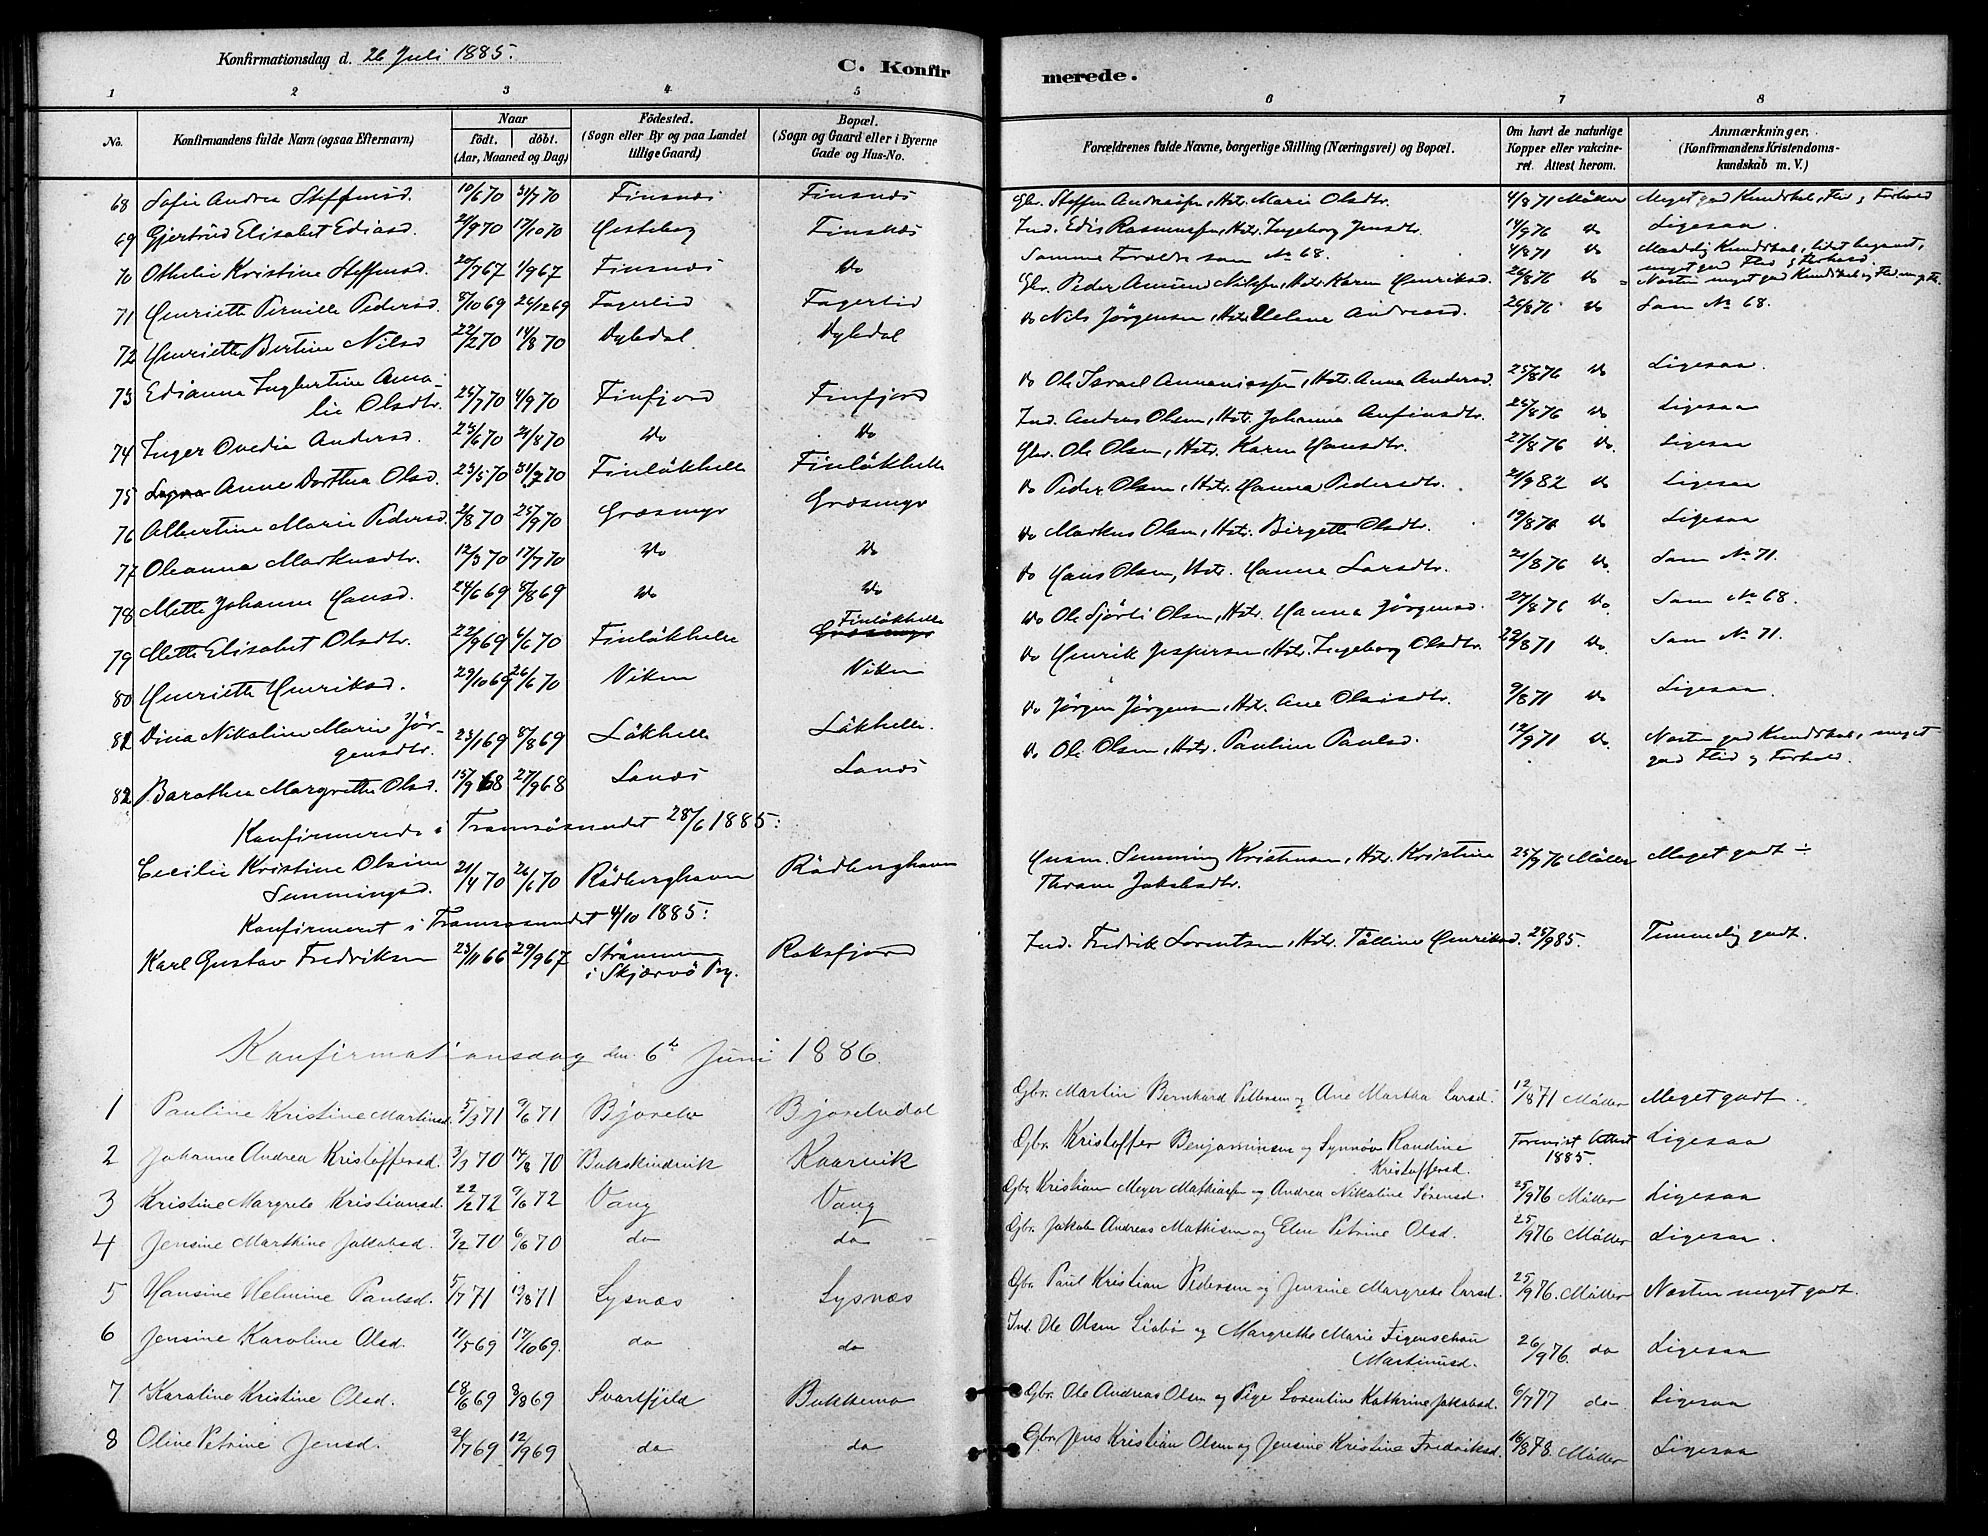 Konfirmationsdag d. 26 Juli 1885.
C. Konfir merede.
1 2 3 4 5 6 7 8
No. Konfirmandens fulde Navn (ogsaa Efternavn) Naar födt. döbt. (Aar, Maaned og Dag) Födested. (Sogn eller By og paa Landet tillige Gaard) Bopæl. (Sogn og Gaard eller i Byerne Gade og Hus-No. Forældrenes fulde Navne, borgerlige Stilling (Næringsvei) og Bopæl. Om havt de naturlige Kopper eller vakcineret. Attest herom. Anmærkninger, (Konfirmandens Kristendomskundskab m. V.)
68 Sofie Andrea Steffensd. 10/6 70 31/7 70 Finsnæs Finsnæs Gbr. Steffen Andreassen, Hstr. Marie Olsdtr. 4/8 71 Møller Meget god Kundskab, Flid og Forhold
69 Gjertrud Elisabet Ediasd. 20/9 70 17/10 70 Hesteberg Finsnæs Ind. Edis Rasmussen, Hstr. Ingeborg Jensdtr. 14/9 76 do Ligesaa
70 Othelie Kristine Steffensd. 20/7 67 1/9 67 Finsnæs Do Samme Forældre som No 68. 4/8 71 do Maadelig Kundskab, lidet begavet, meget god Flid og Forhold.
71 Henriette Pernille Pedersd. 8/10 69 26/12 69 Fagerlid Fagerlid Gbr. Peder Amund Nilssen, Hstr. Karen Henriksd. 26/8 76 do Næsten meget god Kundskab og Flid
72 Henriette Bertine Nilsd 22/2 70 14/8 70 Dybdal Dybdal do Nils Jørgensen, Hstr. Helene Andreasd. 26/8 76 do Som No 68.
73 Edianna Ingbertine Amalie Olsdtr. 25/7 70 4/9 70 Finfjord Finfjord do Ole Israel Annaniassen, Hstr. Anna Andersd. 25/8 76 do Ligesaa.
74 Inger Ovedia Andersd. 23/6 70 21/8 70 Do Do Ind. Andreas Olsen, Hstr. Johanna Anfinsdtr. 25/8 76 do. Ligesaa
75 Anne Dorthea Olsd. 23/5 70 31/7 70 Finløkhelle Finløkhelle Gbr. Ole Olsen, Hstr. Karen Hansdtr. 27/8 76 do. Ligesaa
76 Albertine Marie Pedersd. 2/8 70 25/9 70 Græsmyr Græsmyr do Peder Olsen, Hstr. Hanna Pedersdtr. 21/9 82 do Ligesaa
77 Oleanna Markusdtr. 12/3 70 17/7 70 Do Do do Markus Olsen, Hstr. Birgette Olsdtr. 19/8 76 do Ligesaa
78 Mette Johanne Hansd. 24/6 69 8/8 69 Do Do do Hans Olsen, Hstr. Hanna Larsdtr. 21/8 76 do. Som No 71.
79 Mette Elisabet Olsdtr. 22/9 69 6/6 70 Finløkhelle Finløkhelle Græsmyr do Ole Sjørli Olsen, Hstr. Hanna Jørgensd. 27/8 76 do. Som No 68.
80 Henriette Henriksd. 29/10 69 26/6 70 Viken Viken do Henrik Jespersen, Hstr. Ingeborg Olsdtr. 22/8 71 do. Som No 71.
81 Dina Nikoline Marie Jørgensdtr. 23/1 69 8/8 69 Løkhelle Løkhelle. do Jørgen Jørgensen, Hstr. Ane Olaisdtr. 9/8 71 do Ligesaa.
82 Barothea Margrethe Olsd. 15/9 68 27/9 68 Sanæs Sanæs do Ole Olsen, Hstr. Pauline Paulsd. 12/9 71 do. Næsten god Kundskab, meget god Flid og Forhold.
Konfirmerede i Tromsøsundet 28/6 1885:
Cecilie Kristine Olsine Semmingsd. 21/4 70 26/6 70 Rødberghavn Rødberghavn Husm. Semming Kristensen, Hstr. Kristine Thrane Jakobsdtr. 25/9 76 Møller Meget godt
Konfirmeret i Tromsøsundet 4/10 1885:
Karl Gustav Fredriksen 23/11 66 29/9 67 Strømmen i Skjærvø Pg. Roksfjord Ind. Fredrik Lorentsen, Hstr. Tølline Henriksd. 25/9 85. Temmelig godt.
Konfirmationsdag den 6te Juni 1886.
1 Pauline Kristine Martinsd. 5/3 71 9/6 71 Bjorelv Bjorelvdal Gbr. Martin Bernhard Pettersen og Ane Martha Larsd. 12/8 71 Møller Meget godt.
2 Johanne Andrea Kristoffersd. 3/3 70 14/8 70 Bukskindvik Kaarvik Gbr. Kristoffer Benjaminsen og Synnøv Randine Kristoffersd. Forevist Attest 1885. Ligesaa
3 Kristine Margrete Kristiansd. 22/2 72 9/6 72 Vang Vang Gbr. Kristian Meyer Mathiassen og Andrea Nikoline Sørensd. 25/9 76 Møller Ligesaa
4 Jensine Marthine Jakobsd. 9/2 70 6/6 70 do do Gbr. Jakob Andreas Mathisen og Elen Petrine Olsd. 25/9 76 Møller Ligesaa.
5 Hansine Helmine Paulsd. 5/7 71 13/8 71 Lysnæs Lysnæs Gbr. Paul Kristian Pedersen og Jensine Margrete Larsd. 25/9 76. Møller Næsten meget godt.
6 Jensine Karoline Olsd. 11/5 69 17/10 69. do do Ind. Ole Olsen Liabø og Margrethe Marie Figenschou Martinusd. 26/9 76. do Ligesaa
7 Karoline Kristine Olsd. 28/6 69 8/8 69 Svartfjeld Bukkemo Gbr. Ole Andreas Olsen og Pige Lorentine Kathrine Jakobsd. 6/7 77 do Ligesaa
8 Oline Petrine Jensd. 21/7 69 12/9 69 do do Gbr. Jens Kristian Olsen og Jensine Kristine Fredriksd. 16/8 78. Møller Ligesaa